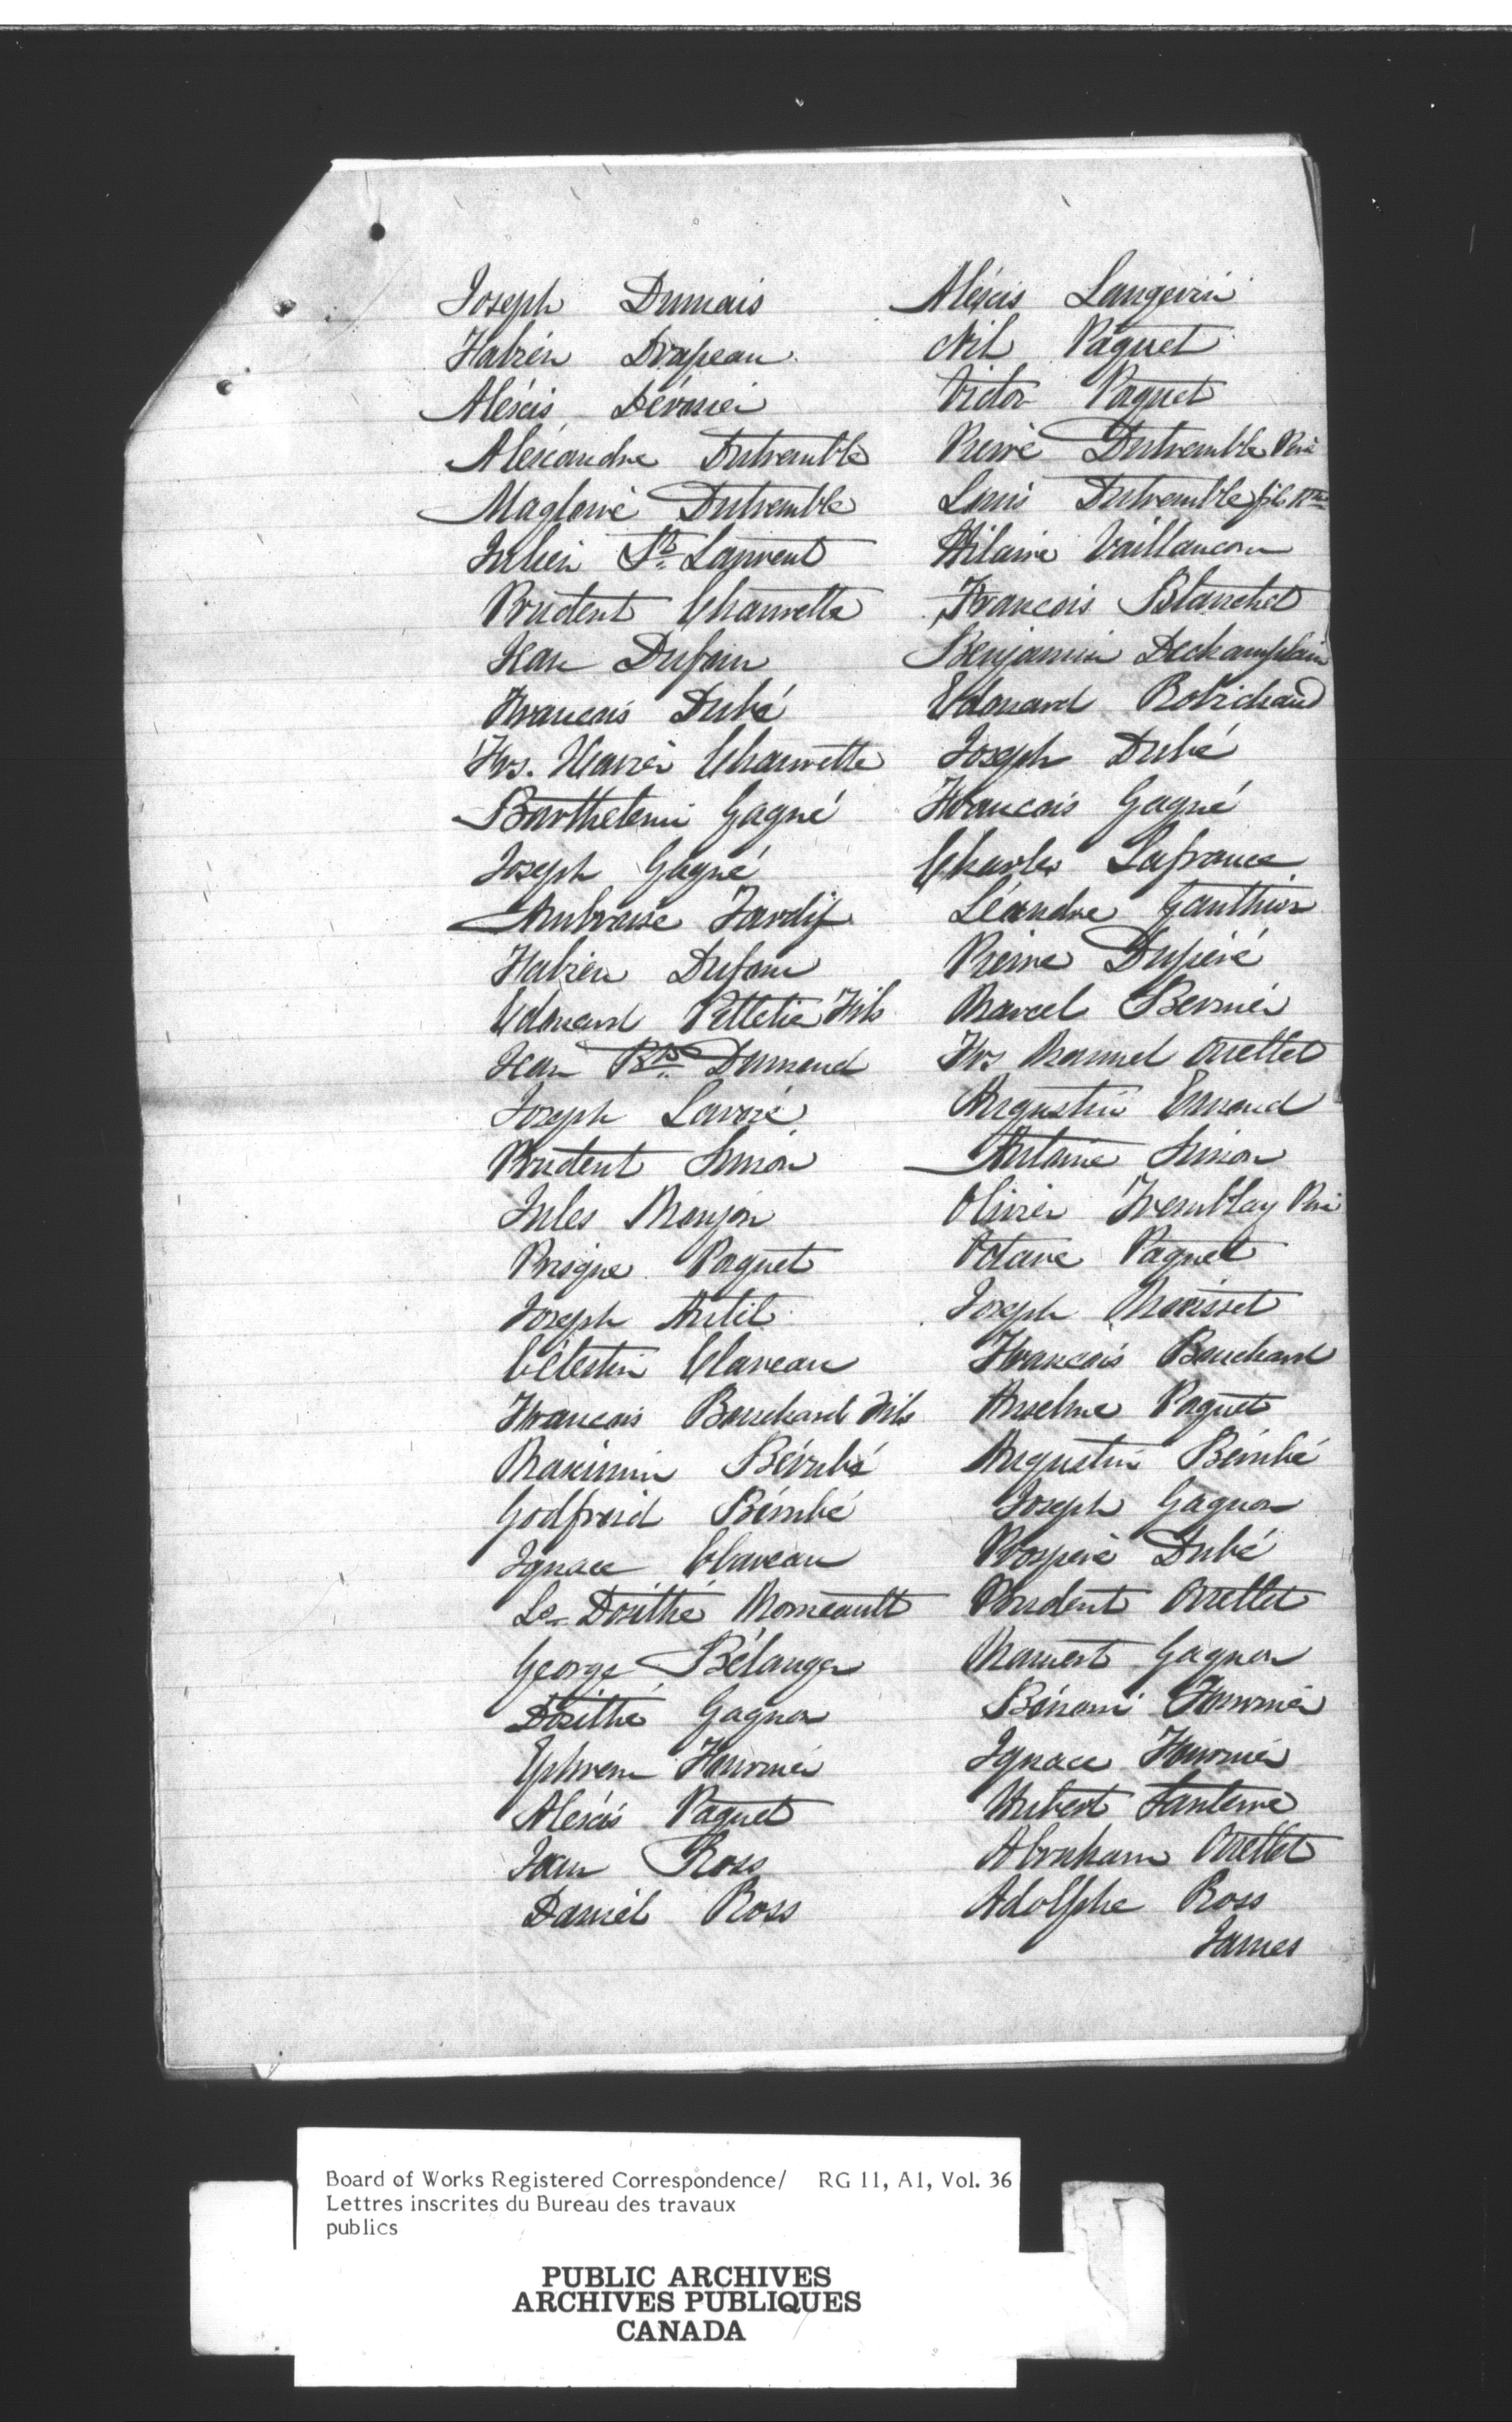 Joseph Dumais
Fabien Drapeau
Aléxis Dérosier
Aléxandre Dutremble
Magloire Dutremble
Julien St. Laurent
Prudent Charrette
Jean Dufour
Francois Dubé
Frs. Xavier Charrette
Barthelemi Gagné
Joseph Gagné
Ambroise Tardif
Fabien Dufour
Edouard Pelletier Fils
Jean Bte Dumond
Joseph Lavoié
Prudent Simon
Jules Moujon
Prisque Paquet
Joseph Autil
Célestin Claveau
Francois Bouchard Fils
Maximin Bérubé
Godfroid Bérubé
Ignace Claveau
Ls Dosithé Morneault
George Bélanger
Dosithé Gagnon
Ephrem Fournier
Aléxis Paquet
Jean Ross
Daniel Ross
Aléxis Langevin
Nil Paquet
Victor Paquet
Pierre Dutremble Père
Louis Dutremble fils
Hilaire Vaillancour
Francois Blanchet
Benjamin Dechamplain
Edouard Robichaud
Joseph Dubé
Francois Gagné
Charles Lafrance
Léandre Gauthier
Pierre Dupéré
Marcel Bernier
Frs Manuel Ouellet
Augustin Emond
Antoine Simon
Olivier Tremblay Père
Octave Paquet
Joseph Morisset
Francois Bouchard
Anselme Paquet
Augustin Bérubé
Joseph Gagnon
Prospère Dubé
Prudent Ouellet
Gagnon
Bénoni Fournier
Ignace Fournier
Hubert
Abraham Ouellet
Adolphe Ross
James
Board of Works Registered Correspondence/ RG 11, A1, Vol. 36
Lettres inscrites du Bureau des travaux
publics
PUBLIC ARCHIVES
ARCHIVES PUBLIQUES
CANADA